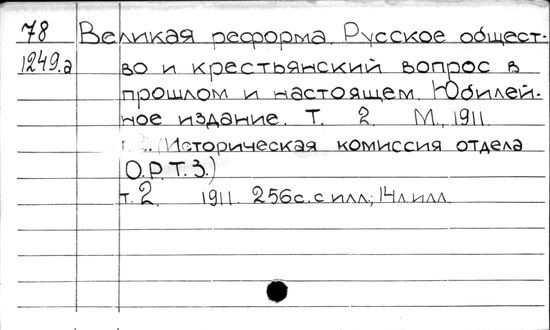 78 Великая реформа. Русское общест-
1249.а во и крестьянский вопрос в
прошлом и настоящем. Юбилей-
ное издание. Т. 2 М., 1911.
(Историческая комиссия отдела
О.Р.Т.З.)
т. 2. 1911. 256с. с илл; 14л илл.